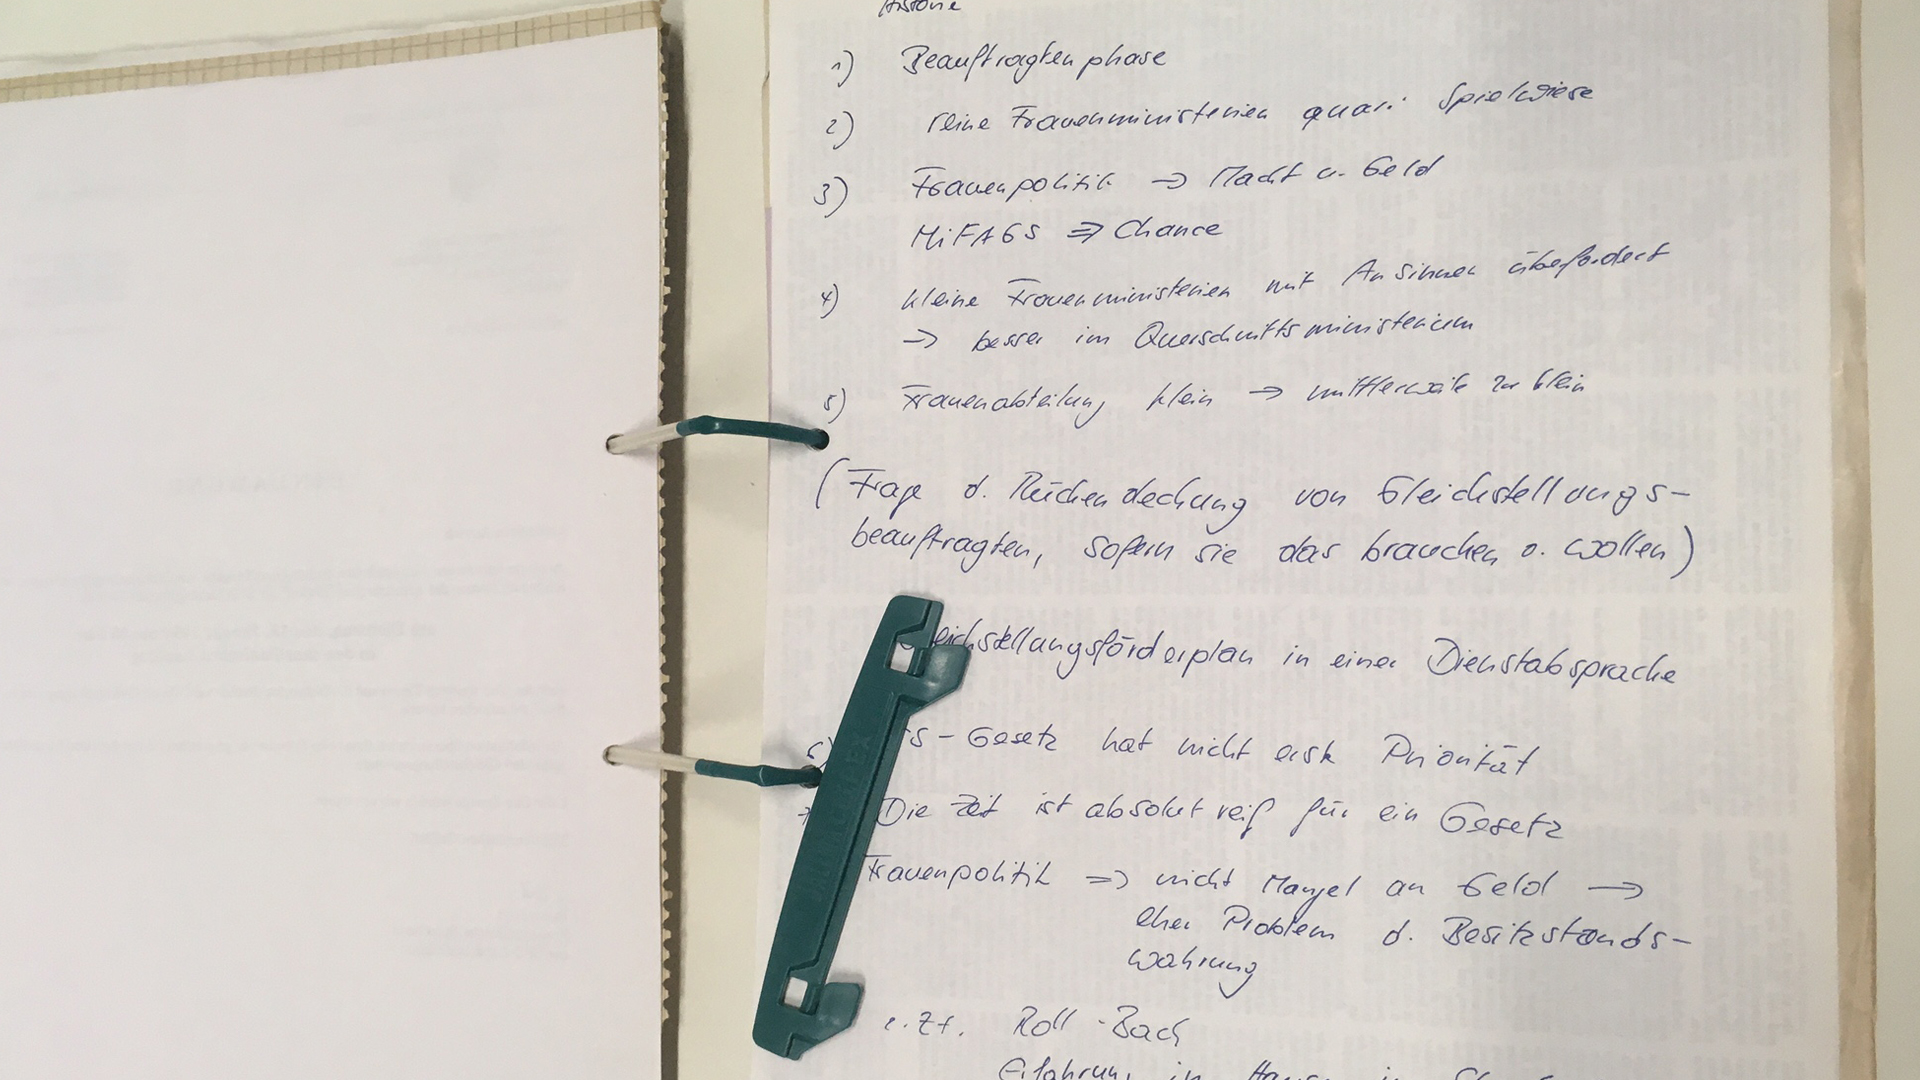 Historie
1) Beauftragtenphase
2) reine Frauenministerien quasi Spielwiese
3) Frauenpolitik → Macht u. Geld
MiFAGS ⇒ Chance
4) kleine Frauenministerien mit Ansinnen überfordert
→ besser im Querschnittsministerium
5) Frauenabteilung klein → mittlerweile zu klein
(Frage d. Rückendeckung von Gleichstellungs-
beauftragten, sofern sie das brauchen o. wollen)
eichstellungsförderplan in einer Dienstabsprache
6) S-Gesetz hat nicht erste Priorität
Die Zeit ist absolut reif für ein Gesetz
Frauenpolitik ⇒ nicht Mangel an Geld →
eher Problem d. Besitzstands-
wahrung
z.Zt. Roll-Back
Erfahrung in